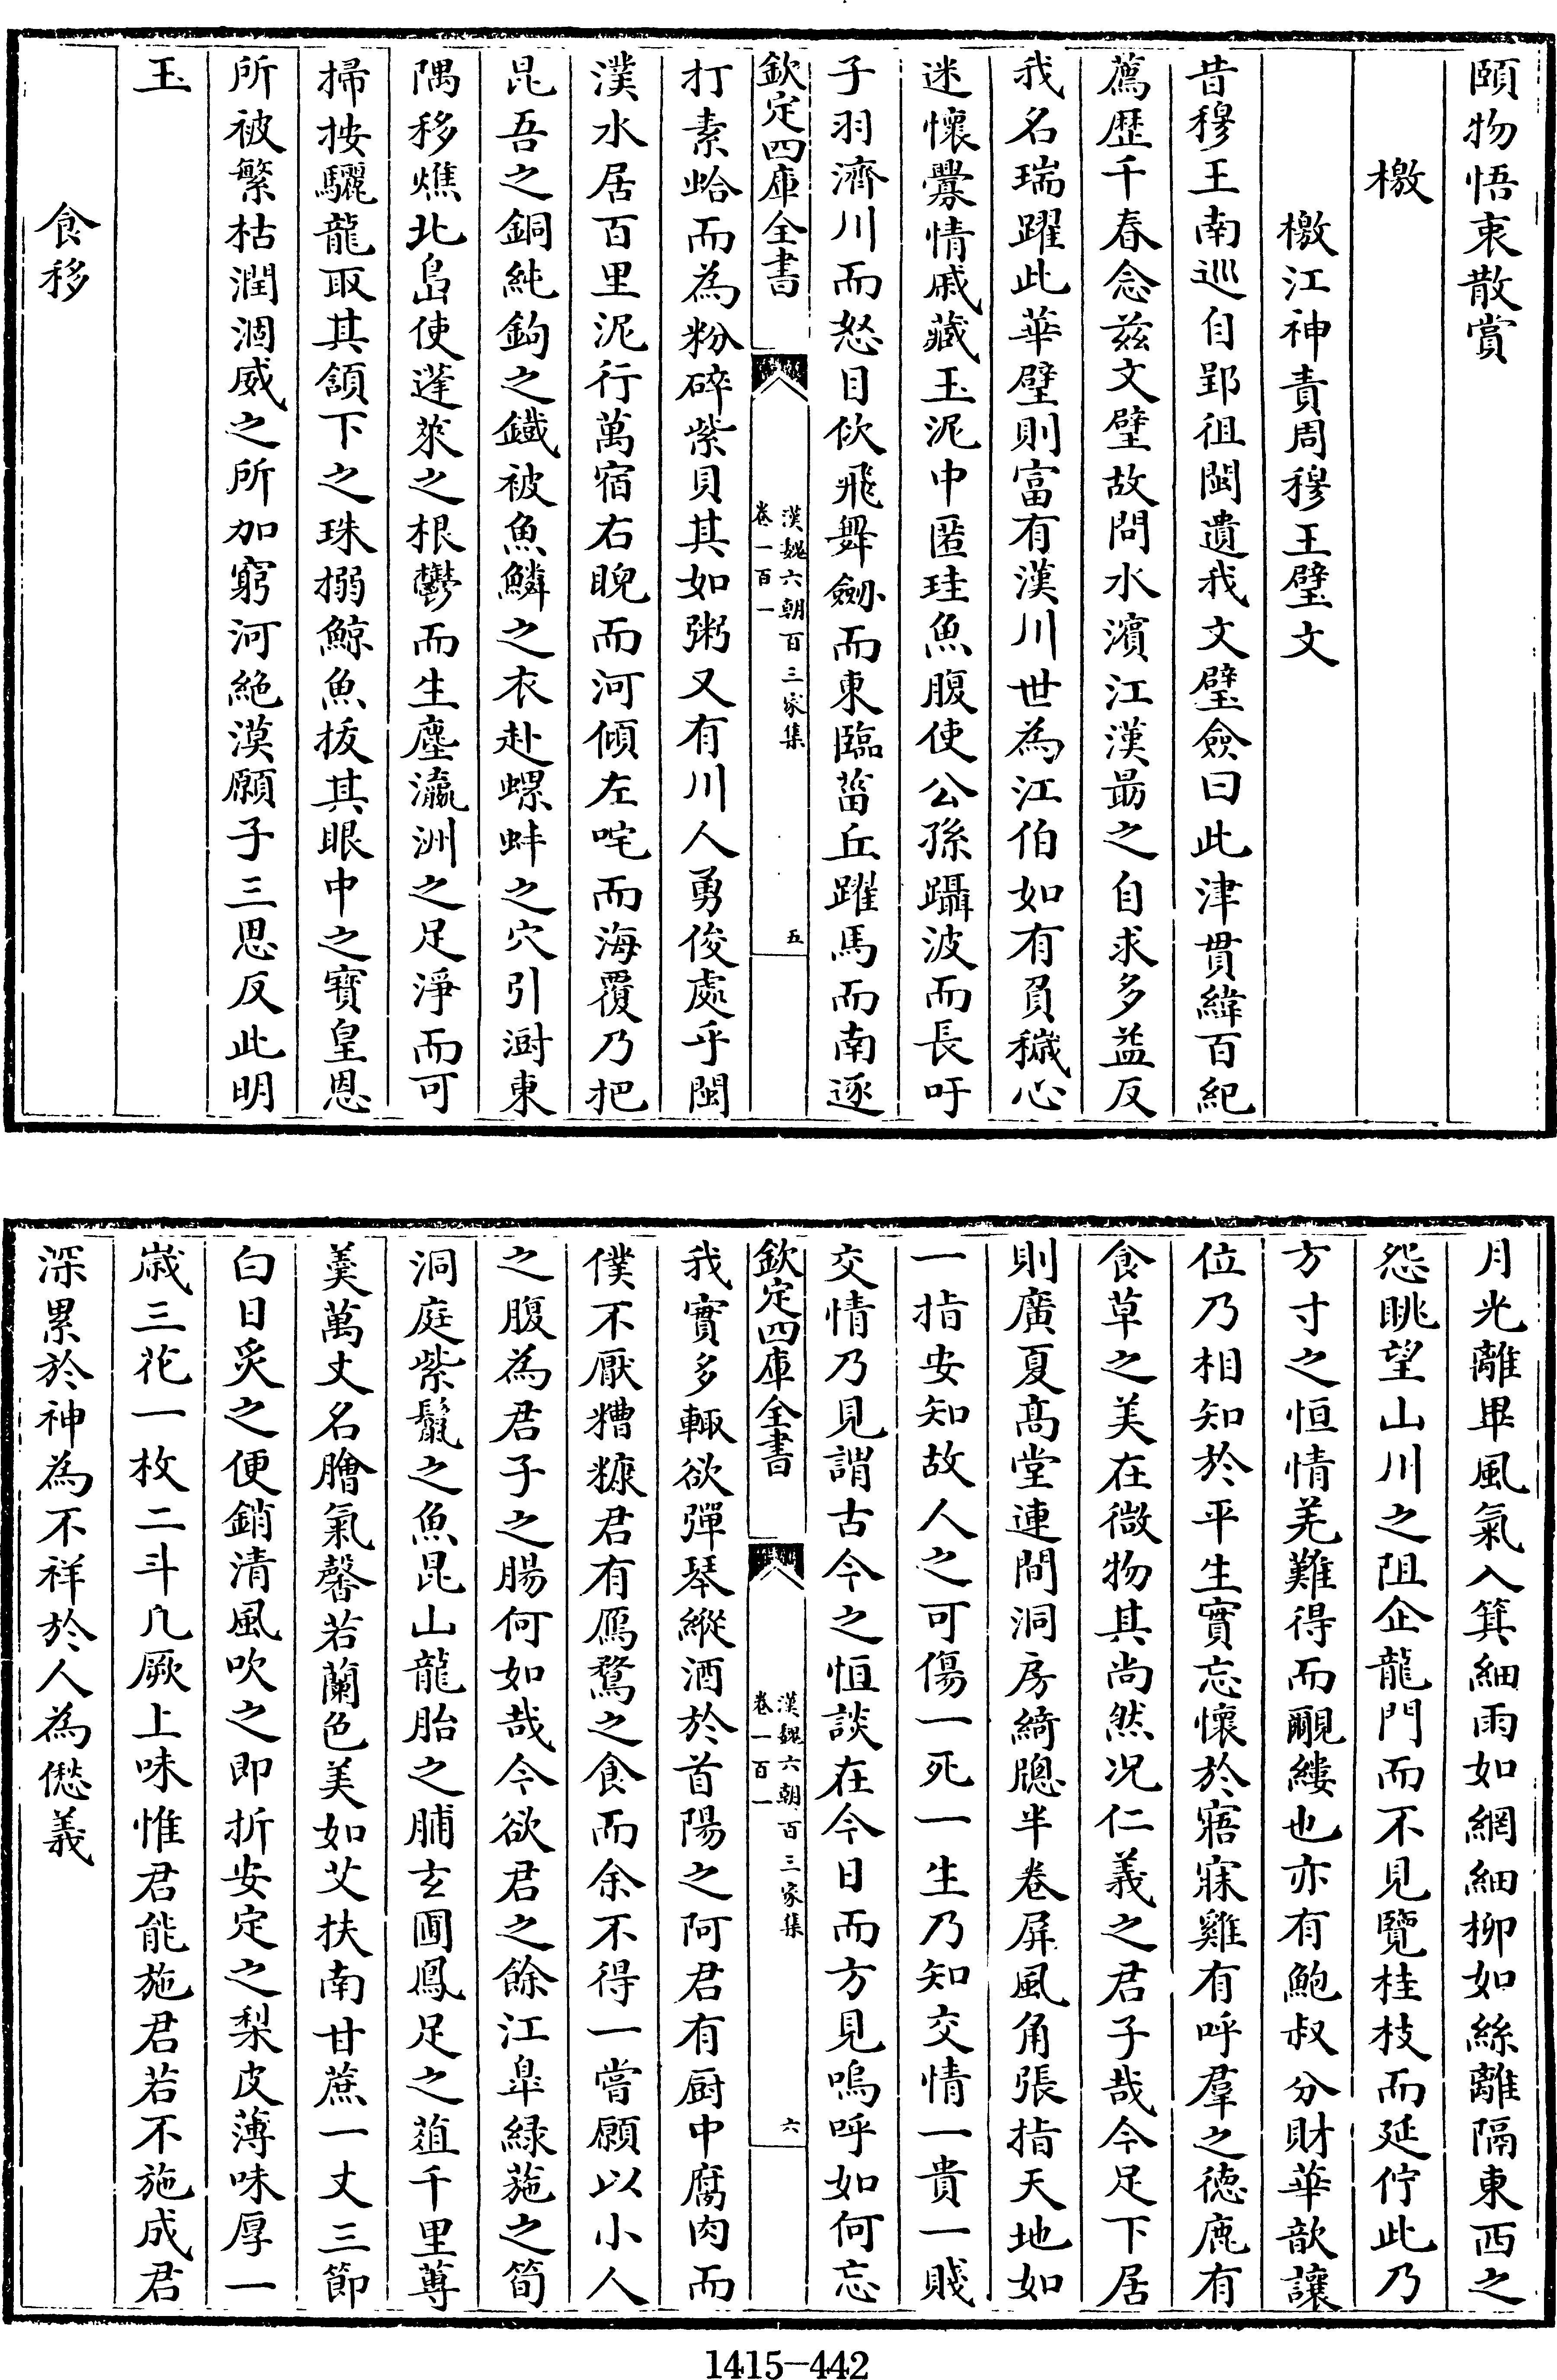 頤物悟衷散賞
檄
檄江神責周穆王璧文
昔穆王南巡自郢徂閩遺我文璧僉曰此津貫緯百紀
薦歴千春念兹文璧故問水濱江漢最之自求多益反
我名瑞躍此華壁則富有漢川世為江伯如有負穢心
迷懷釁情慼藏玉泥中匿珪魚腹使公孫躡波而長吁
子羽濟川而怒目佽飛舞劒而東臨菑丘躍馬而南逐
欽定四庫全書
漢魏六朝百三家集
卷一百一
五
打素蛤而為粉碎紫貝其如粥又有川人勇俊處乎閩
濮水居百里泥行萬宿右睨而河傾左咤而海覆乃把
昆吾之銅純鉤之鐵被魚鱗之衣赴螺蚌之穴引澍東
隅移燋北島使蓬萊之根鬱而生塵瀛洲之足淨而可
掃按驪龍取其頷下之珠搦鯨魚拔其眼中之寶皇恩
所被繁枯潤涸威之所加窮河絶漠願子三思反此明
玉
食移
月光離畢風氣入箕細雨如網細柳如絲離隔東西之
怨眺望山川之阻企龍門而不見覽桂枝而延佇此乃
方寸之恒情羌難得而覼縷也亦有鮑叔分財華歆讓
位乃相知於平生實忘懷於寤寐雞有呼羣之徳鹿有
食草之美在微物其尚然况仁義之君子哉今足下居
則廣夏髙堂連間洞房綺牎半卷屏風角張指天地如
一指安知故人之可傷一死一生乃知交情一貴一賤
交情乃見謂古今之恒談在今日而方見嗚呼如何忘
欽定四庫全書
漢魏六朝百三家集
卷一百一
六
我實多輙欲彈琴縱酒於首陽之阿君有厨中腐肉而
僕不厭糟糠君有鴈鶩之食而余不得一嘗願以小人
之腹為君子之腸何如哉今欲君之餘江臯緑葹之筍
洞庭紫鬛之魚昆山龍胎之脯玄圃鳳足之葅千里蓴
羮萬丈名膾氣馨若蘭色美如艾扶南甘蔗一丈三節
白日炙之便銷清風吹之即折安定之梨皮薄味厚一
嵗三花一枚二斗凡厥上味惟君能施君若不施成君
深累於神為不祥於人為愆義
1415-442